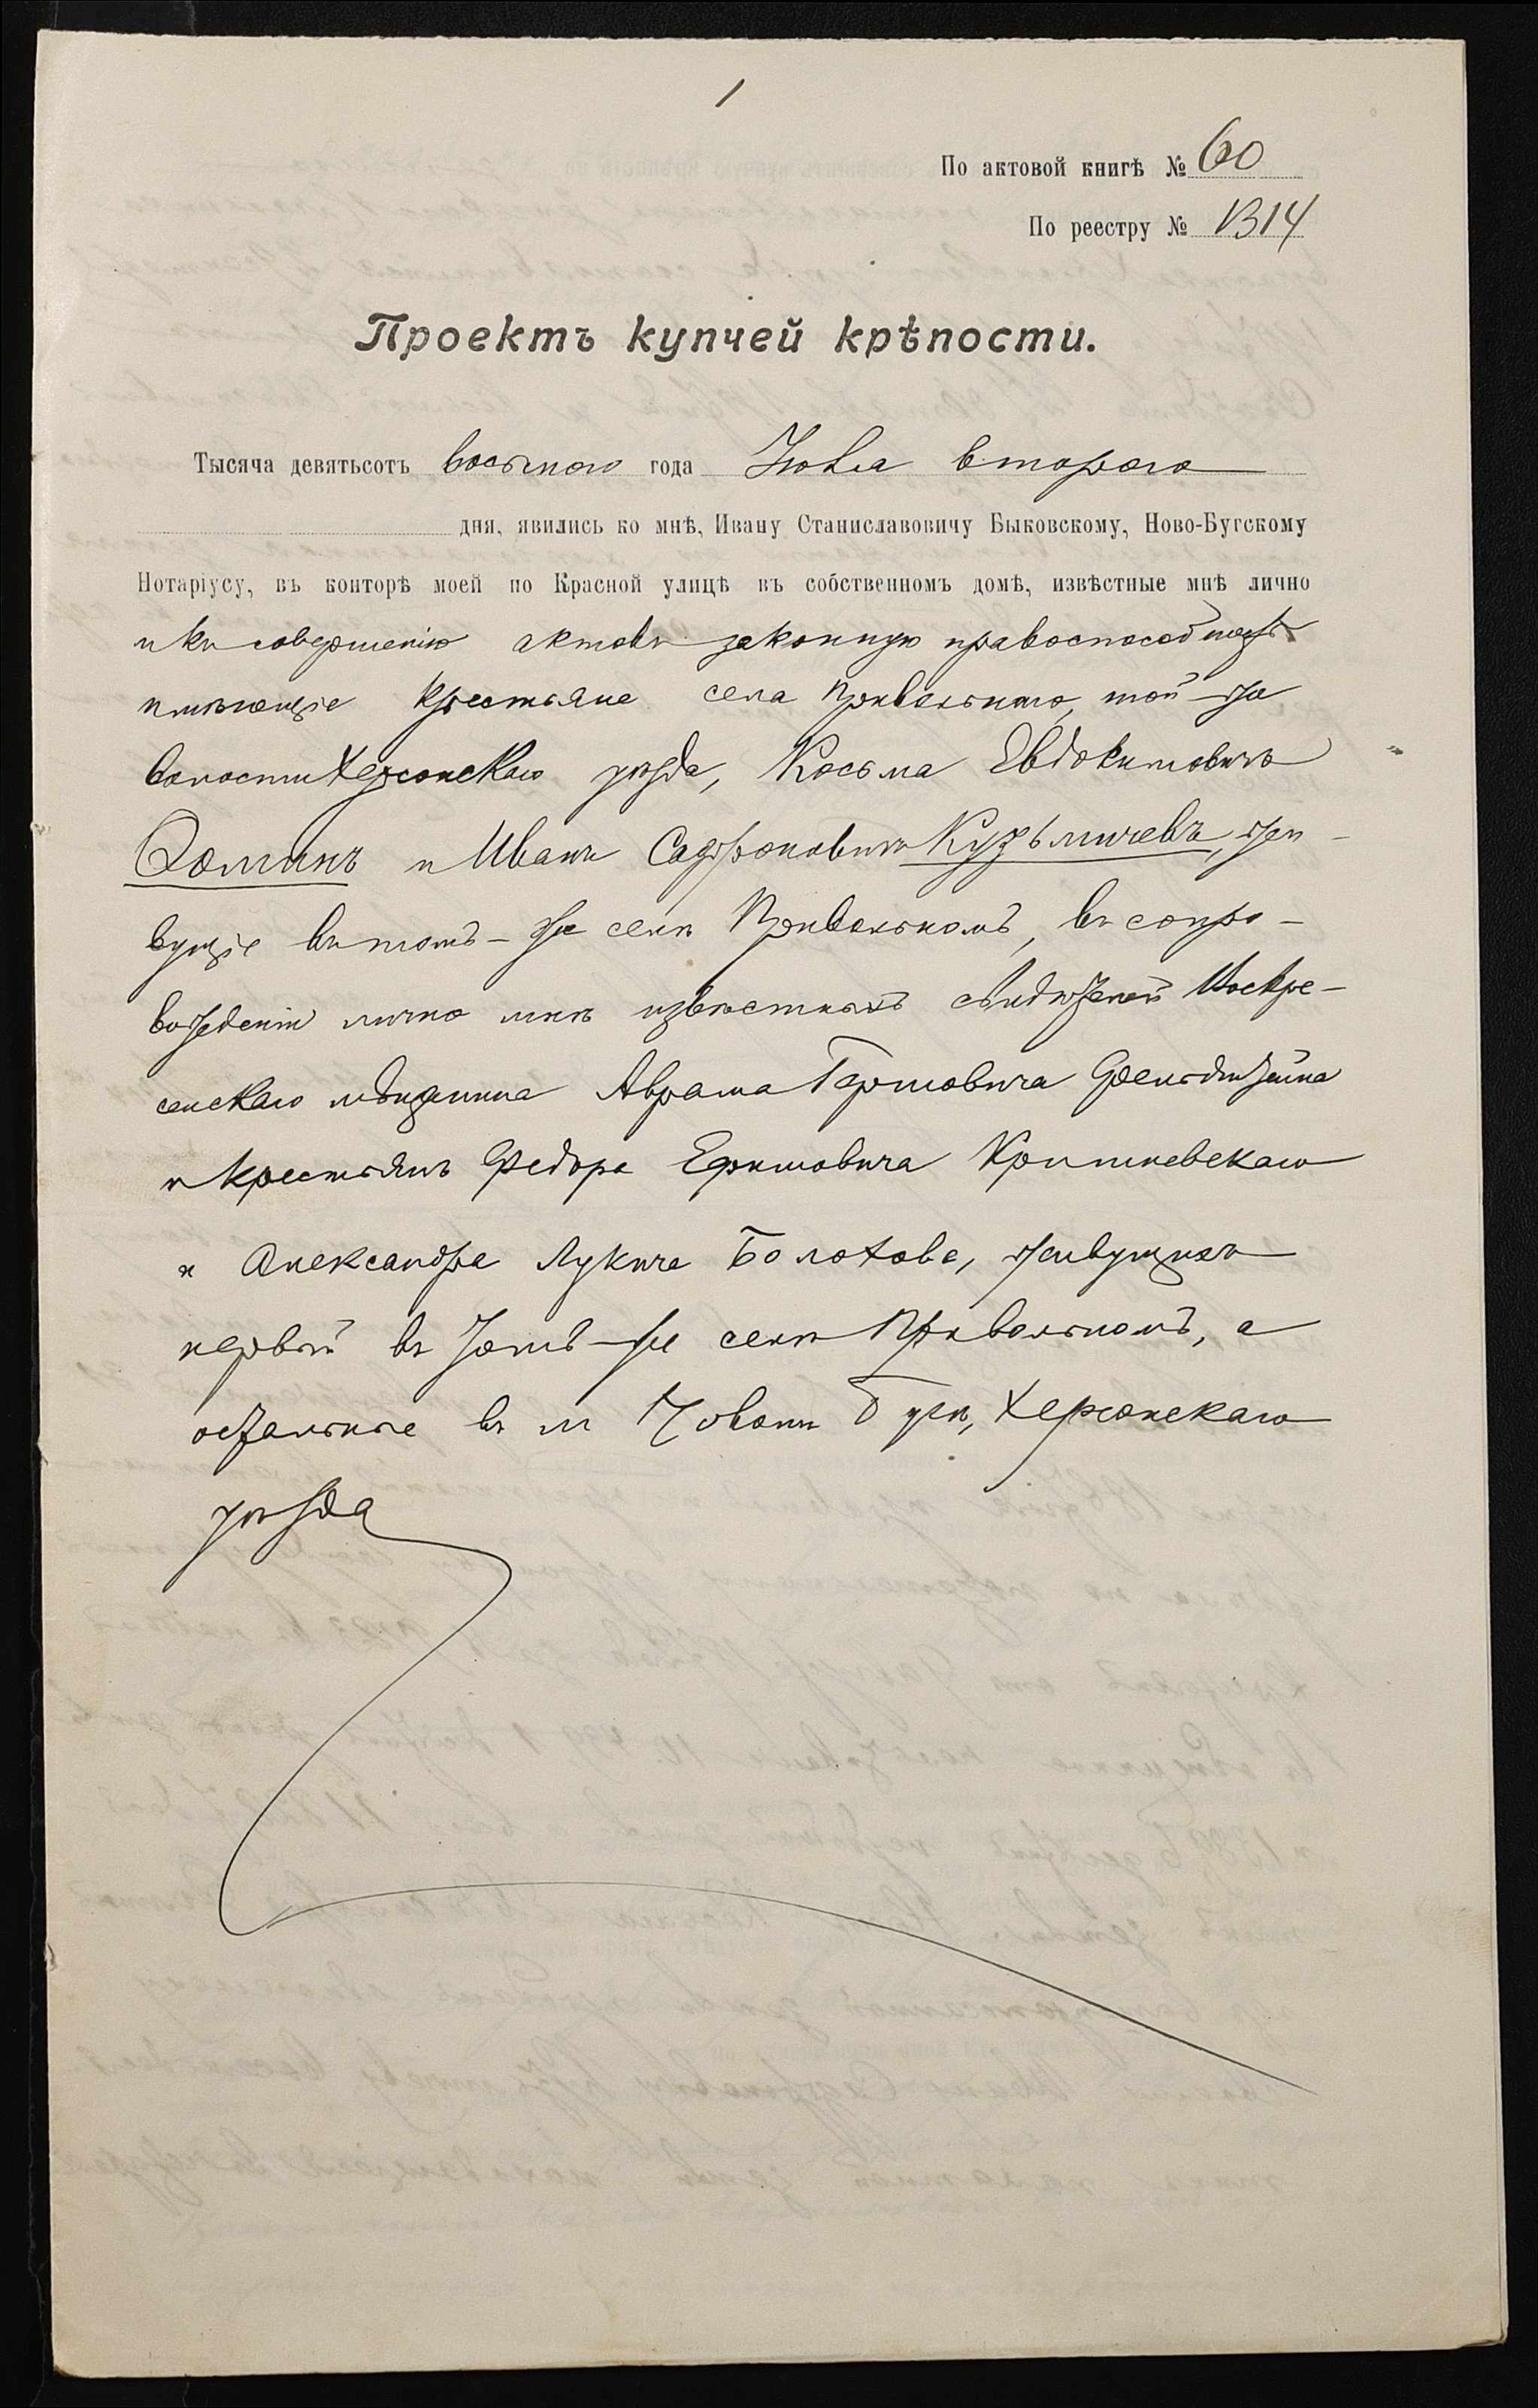 1
По актовой книгѣ № 60
По реестру № 1314
Проектъ купчей крѣпости.
Тысяча девятьсотъ восьмого года Іюля второго
дня, явились ко мнѣ, Ивану Станиславовичу Быковскому, Ново-Бугскому
Нотаріусу, въ конторѣ моей по Красной улицѣ въ собственномъ домѣ, извѣстные мнѣ лично
и къ совершенію актовъ законную правоспособность
имѣющіе крестьяне села Привольнаго, той-же
волости Херсонскаго уѣзда, Косьма Евдокимовичъ
Фоминъ и Иванъ Сафроновичъ Кузьмичевъ, жи-
вущіе въ томъ-же селѣ Привольномъ, въ сопро-
вожденіи лично мнѣ извѣстныхъ свидѣтелей Воскре-
сенскаго мѣщанина Аврама Гершовича
и крестьянъ Федора Ефимовича Кришневскаго
и Александра Лукича Болотова, живущихъ
первый въ томъ-же селѣ Привольномъ, а
остальные въ м Новомъ Бугѣ, Херсонскаго
уѣзда